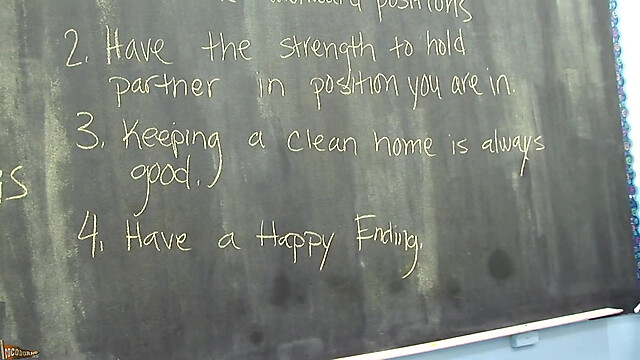 awkward positions
2. Have the strength to hold
partner in position you are in.
3. Keeping a clean home is always
good.
is
4. Have a Happy Ending.